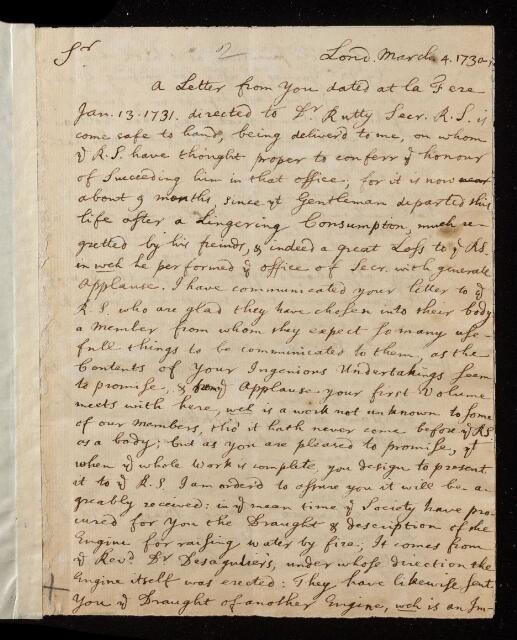 Sr 2 Lond. March 4. 1730/1
A Letter from You dated at la Fere
Jan. 13. 1731. directed to Dr Rutty Secr. R.S. is
come safe to hand, being deliverd to me, on whom
ye R.S. have thought proper to conferr ye honour
of Succeeding him in that office; for it is now near
about 9 months, since yt Gentleman departed this
life after a Lingering Consumption, much re-
gretted by his freinds, & indeed a great Loss to ye R.S.
in wch he performed ye office of Secr. with generall
Applause. I have communicated your letter to ye
R.S. who are glad they have chosen into their body
a Member from whom they expect so many use-
full things to be communicated to them, as the
Contents of Your Ingenious Undertakings seem
to promise, & ye Applause your first Volume
meets with here, wch is a work not unknown to some
of our Members, tho it hath never come before ye R.S.
as a body; but as you are pleased to promise, yt
when ye whole Work is complete, you design to present
it to ye R.S. I am orderd to assure you it will be a-
greably received: in ye mean time ye Society have pro-
cured for You the Draught & description of the
Engine for raising water by fire; It comes from
ye Revd. Dr Desaguliers, under whose direction the
Engine itself was erected: They have likewise sent
You ye Draught of another Engine, wch is an Im-